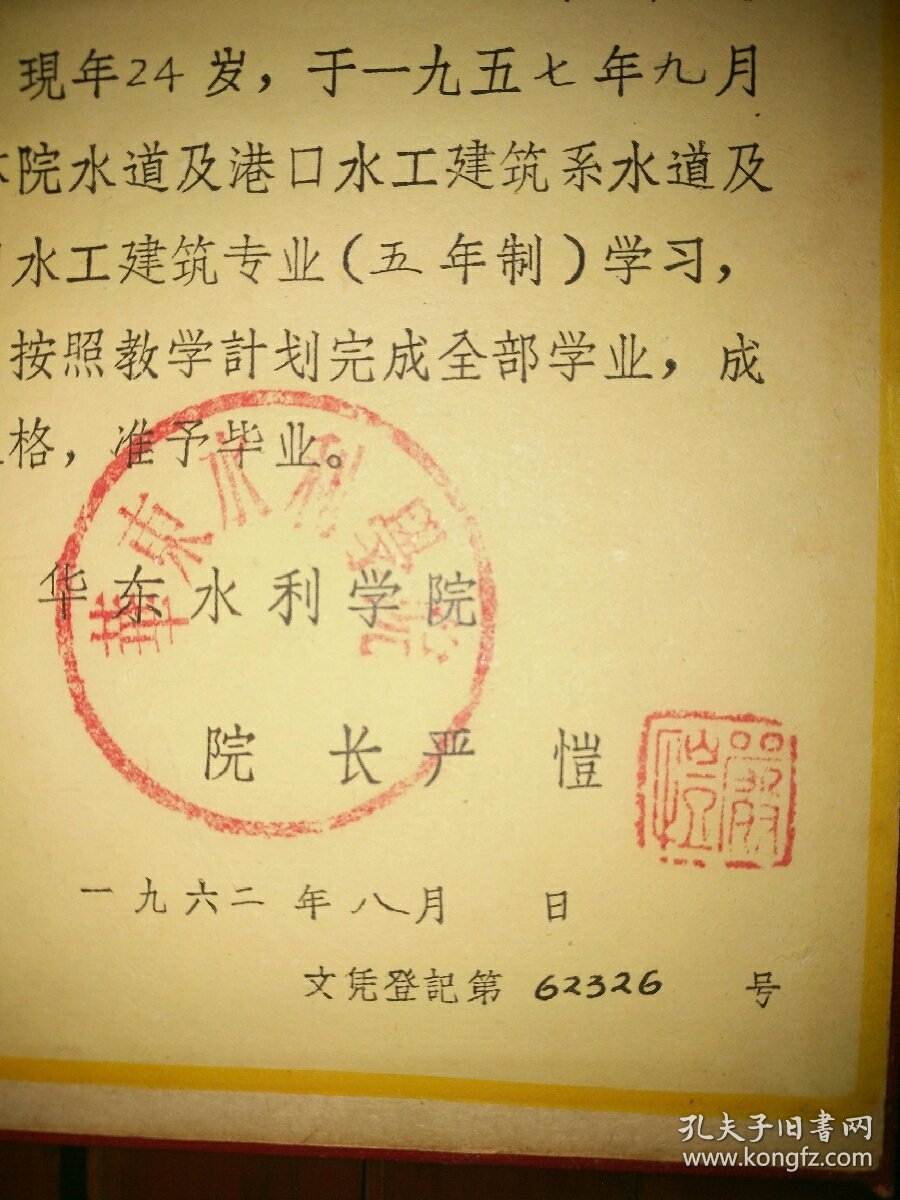 現年24岁，于一九五七年九月
院水道及港口水工建筑系水道及
水工建筑专业(五年制)学习，
按照教学計划完成全部学业，成
格，准予毕业。
華東水利學院
华东水利学院
院 长 严 愷
嚴愷
一九六二年八月 日
文凭登記第 62326 号
孔夫子旧书网
www.kongfz.com